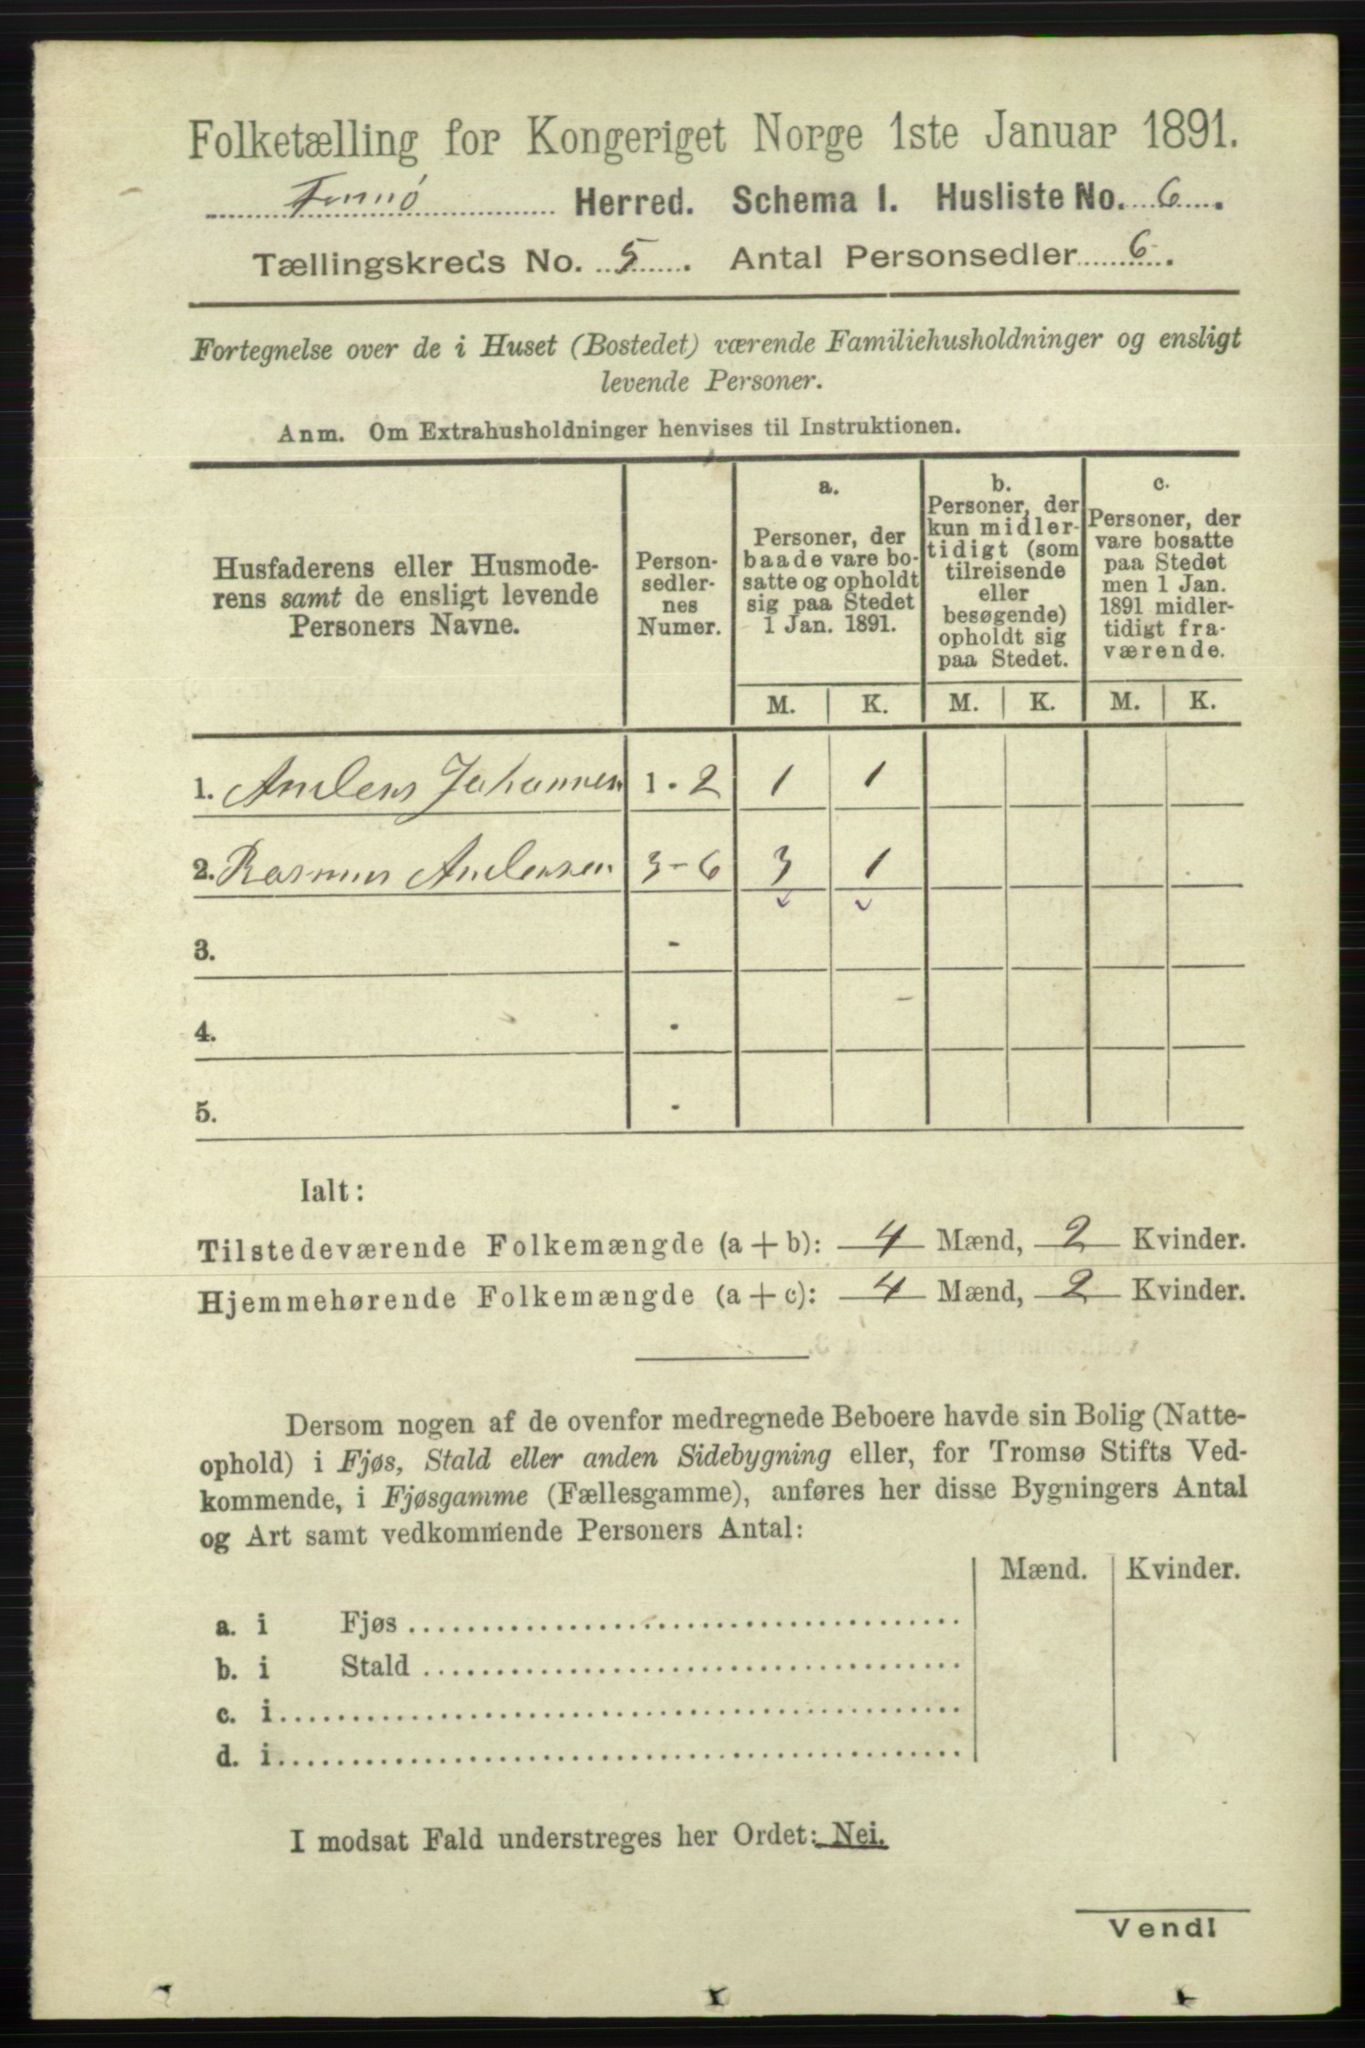 Folketælling for Kongeriget Norge 1ste Januar 1891.
Herred. Schema I. Husliste No. 6.
Tællingskreds No. 5. Antal Personsedler 6.
Fortegnelse over de i Huset (Bostedet) værende Familiehusholdninger og ensligt
levende Personer.
Anm. Om Extrahusholdninger henvises til Instruktionen.
Husfaderens eller Husmode-
rens samt de ensligt levende
Personers Navne.
Person-
sedler-
nes
Numer.
a.
Personer, der
baade vare bo-
satte og opholdt
sig paa Stedet
1 Jan. 1891.
b.
Personer, der
kun midler-
tidigt (som
tilreisende
eller
besøgende)
opholdt sig
paa Stedet.
c.
Personer, der
vare bosatte
paa Stedet
men 1 Jan.
1891 midler-
tidigt fra-
værende.
M. K. M. K. M. K.
1. Anders Johannesen 1 - 2 1 1
2. Rasmus Andersen 3 - 6 3 1
3. -
4. -
5. -
Ialt:
Tilstedeværende Folkemængde (a + b): 4 Mænd, 2 Kvinder.
Hjemmehørende Folkemængde (a + c): 4 Mænd, 2 Kvinder.
Dersom nogen af de ovenfor medregnede Beboere havde sin Bolig (Natte-
ophold) i Fjøs, Stald eller anden Sidebygning eller, for Tromsø Stifts Ved-
kommende, i Fjøsgamme (Fællesgamme), anføres her disse Bygningers Antal
og Art samt vedkommende Personers Antal:
Mænd. Kvinder.
a. i Fjøs
b. i Stald
c. i
d. i
I modsat Fald understreges her Ordet: Nei.
Vend!